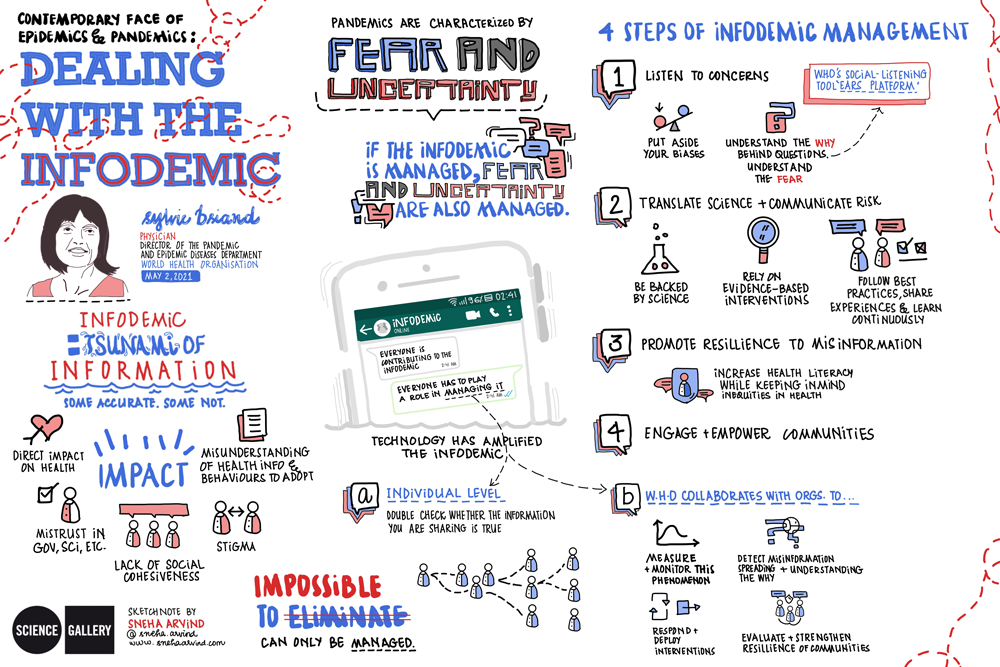 CONTEMPORARY FACE OF
EPIDEMICS & PANDEMICS:
DEALING
WITH THE
INFODEMIC
sylvie briand
PHYSICIAN
DIRECTOR OF THE PANDEMIC
AND EPIDEMIC DISEASES DEPARTMENT
WORLD HEALTH ORGANISATION
MAY 2, 2021
INFODEMIC
=TSUNAMI OF
INFORMATION
SOME ACCURATE. SOME NOT.
DIRECT IMPACT
ON HEALTH
IMPACT
MISUNDERSTANDING
OF HEALTH INFO &
BEHAVIOURS TO ADOPT
MISTRUST IN
GOV, SCI, ETC.
LACK OF SOCIAL
COHESIVENESS
STIGMA
SCIENCE
GALLERY
SKETCHNOTE BY
SNEHA ARVIND
@ sneha.arvind
www.snehaarvind.com
PANDEMICS ARE CHARACTERIZED BY
FEAR AND
UNCERTAINTY
IF THE INFODEMIC
IS MANAGED, FEAR
AND UNCERTAINTY
ARE ALSO MANAGED.
96% 02:41
INFODEMIC
ONLINE
EVERYONE IS
CONTRIBUTING TO THE
INFODEMIC
2:41 AM
EVERYONE HAS TO PLAY
A ROLE IN MANAGING IT
2:41 AM
TECHNOLOGY HAS AMPLIFIED
THE INFODEMIC
a
INDIVIDUAL LEVEL
DOUBLE CHECK WHETHER THE INFORMATION
YOU ARE SHARING IS TRUE
IMPOSSIBLE
TO ELIMINATE
CAN ONLY BE MANAGED.
4 STEPS OF INFODEMIC MANAGEMENT
1
LISTEN TO CONCERNS
WHO'S SOCIAL-LISTENING
TOOL 'EARS PLATFORM.'
PUT ASIDE
YOUR BIASES
UNDERSTAND THE WHY
BEHIND QUESTIONS,
UNDERSTAND
THE FEAR
2
TRANSLATE SCIENCE + COMMUNICATE RISK
BE BACKED
BY SCIENCE
RELY ON
EVIDENCE-BASED
INTERVENTIONS
FOLLOW BEST
PRACTICES, SHARE
EXPERIENCES & LEARN
CONTINUOUSLY
3
PROMOTE RESILLIENCE TO MISINFORMATION
INCREASE HEALTH LITERACY
WHILE KEEPING IN MIND
INEQUITIES IN HEALTH
4
ENGAGE + EMPOWER COMMUNITIES
b
W.H.O COLLABORATES WITH ORGS. TO...
MEASURE
+ MONITOR THIS
PHENOMENON
DETECT MISINFORMATION
SPREADING + UNDERSTANDING
THE WHY
RESPOND +
DEPLOY
INTERVENTIONS
EVALUATE + STRENGTHEN
RESILLIENCE OF COMMUNITIES